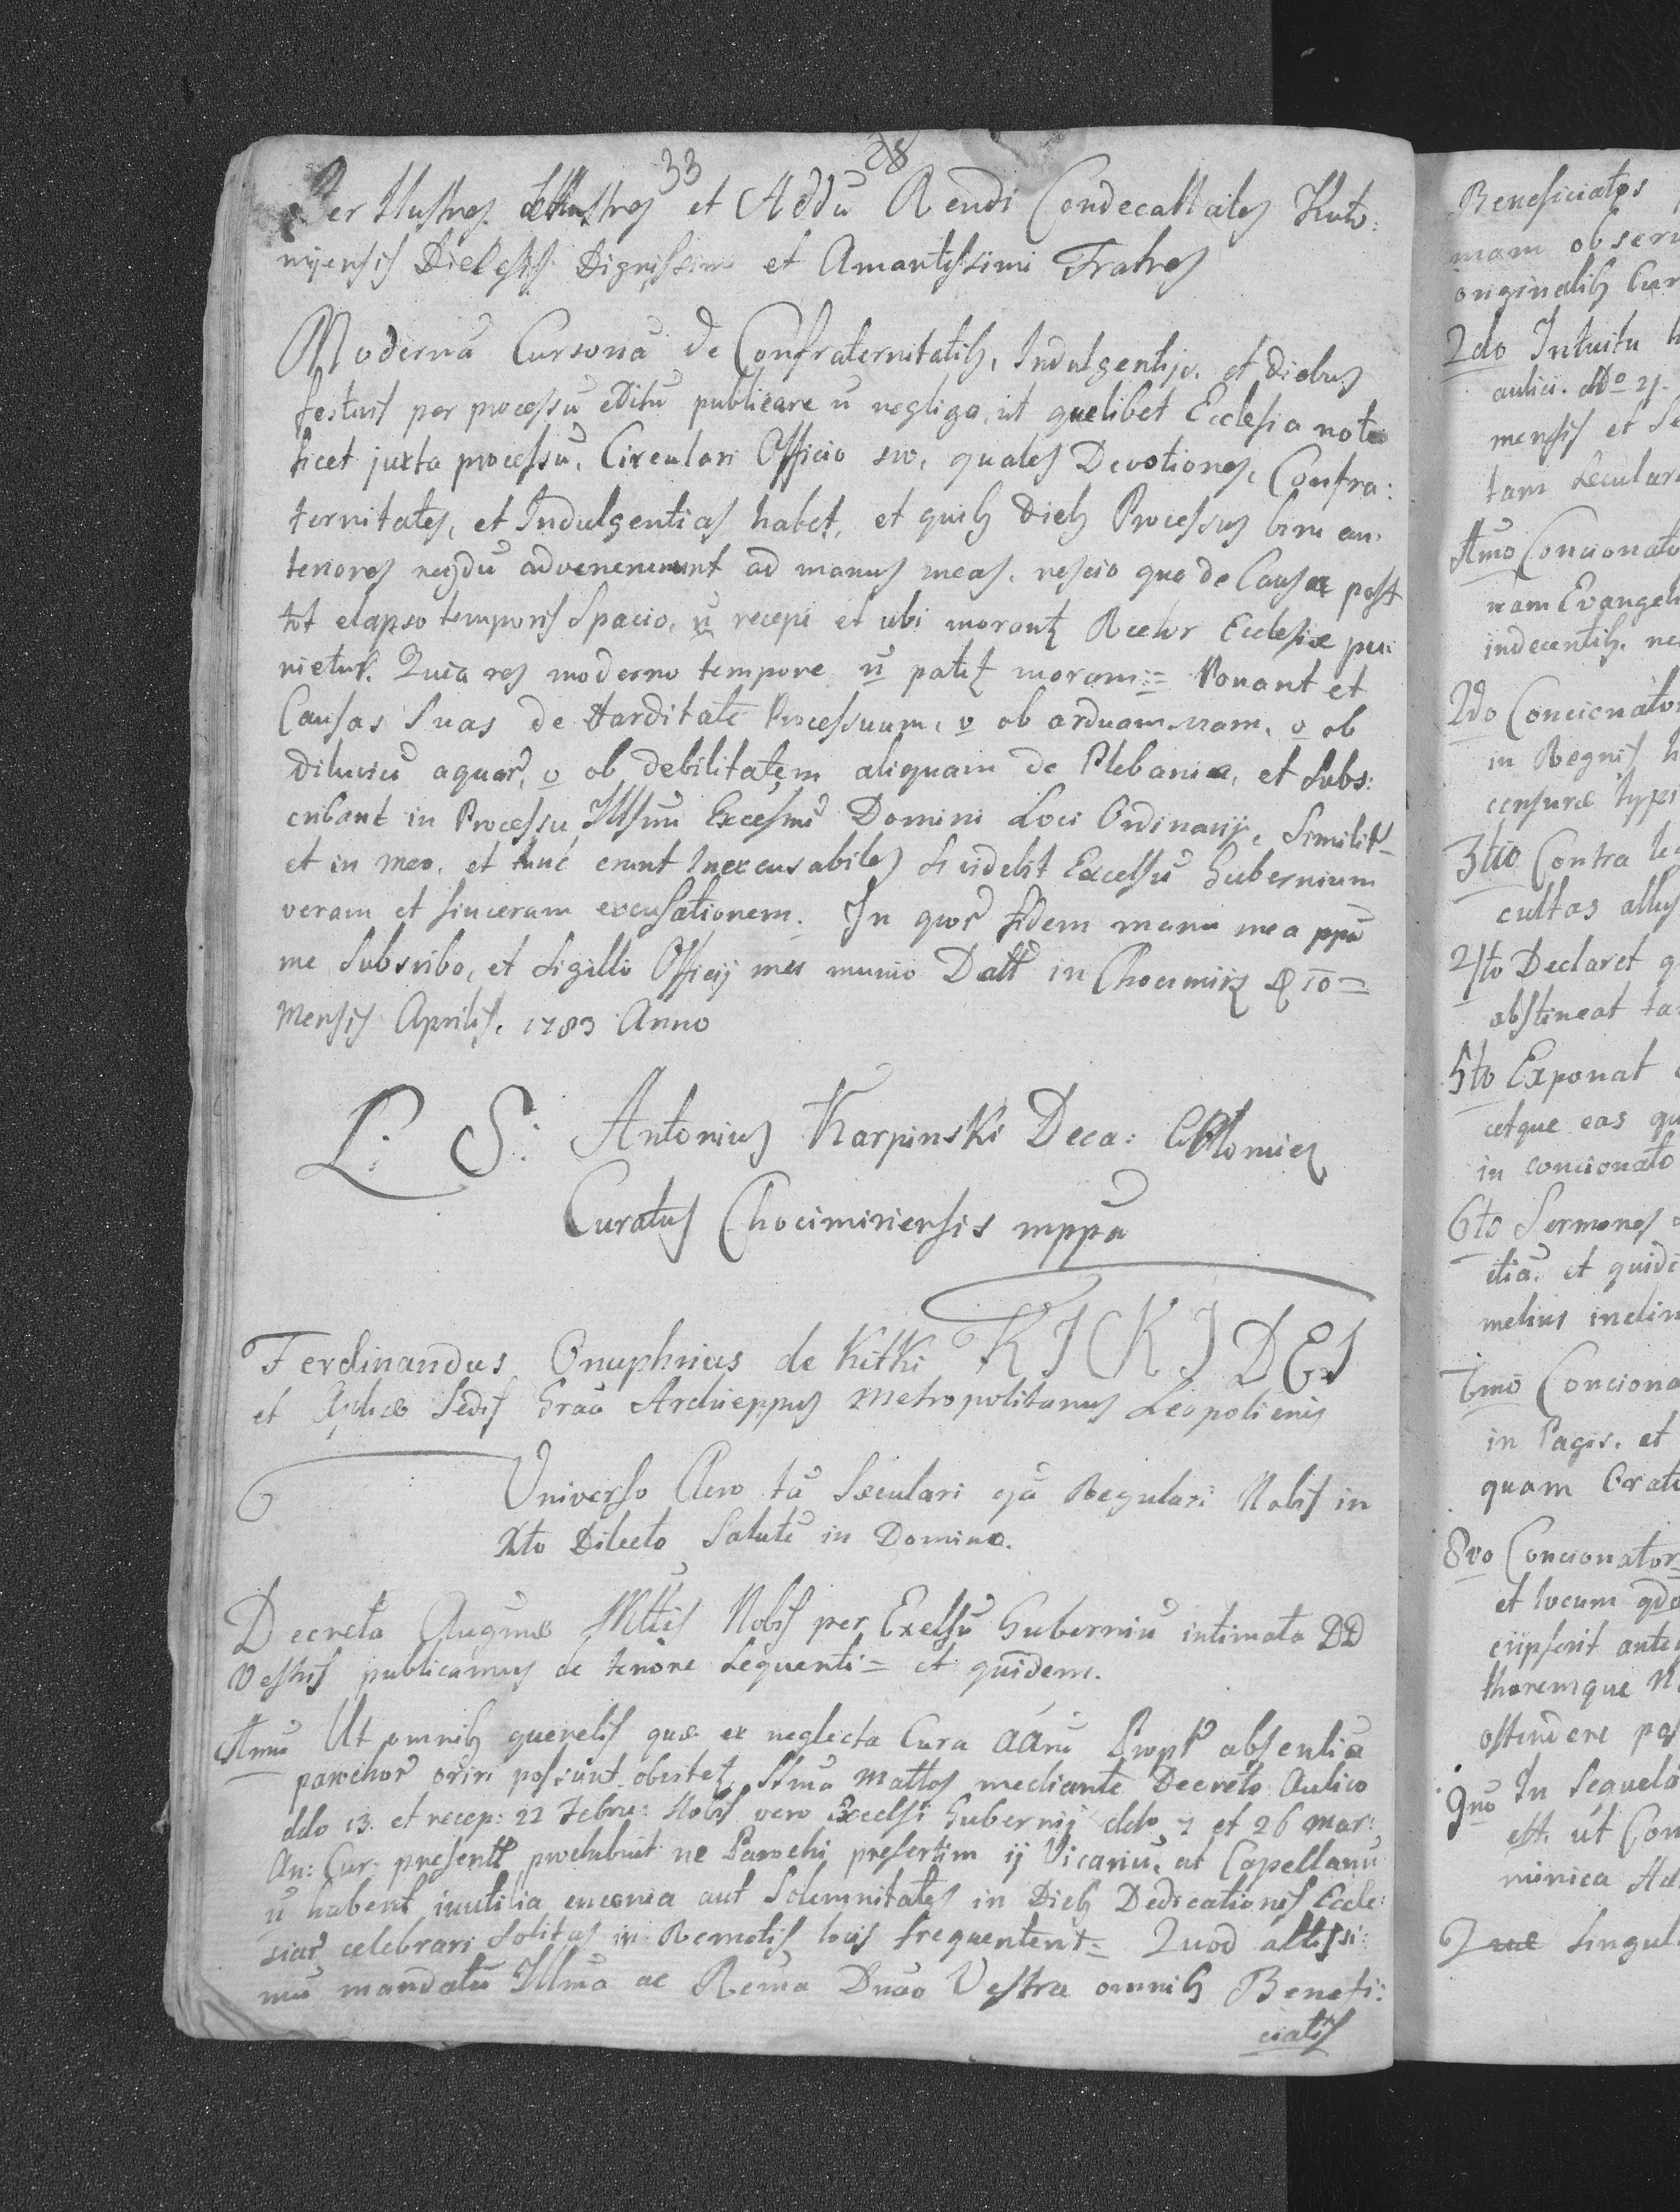 33 28
Per Illustres et Addū Rendi Condecattales Koto:
myensis Dielesis Dignissimi et Amantissimi Fratres
Modernā Cursoriā de Confraternitatib, Indulgentijs. et diebus
festivis per processū editū publicare ū negligo, ut quelibet Ecclesia noti
ficet juxta processū, Circulari Officio suo, quales Devotiones, Confra:
ternitates, et Indulgentias habet, et quib dieb Processus bini an,
teriores neqdū advenerunt ad manus meas, nescio qua de Causa post
tot elapso temporis Spacio, ū recepi et ubi morant Rector Ecclesiæ pu:
nietur. Quia res moderno tempore ū patit moram := Ponant et
Causas Suas de tarditate Processuum, v ob arduam viam, v ob
diluviū aquar, v ob debilitatem aliquam de Plebania, et Subs:
cribant in Processu Illsmi Excessmi Domini Loci Ordinarij, Similit
et in meo, et tunc erunt Inexcusabiles Si videbit Excelsū Gubernium
veram et sinceram excusationem. In quor fidem manu mea ppā
me Subscribo, et Sigillo Officij mei munio Datt in Chocimirz D 10 =
Mensis Aprilis. 1783 Anno
L: S: Antonius Karpinski Deca: Colomien
Curatus Chocimiriensis mppā
Ferdinandus Onuphrius de Kitki KICKI DEI
et Aplicæ Sedis Graā Archieppus Metropolitanus Leopoliensis
Universo Clero tā Sæculari qā Regulari Nobis in
Xto Dilecto Salutē in Domino.
Decreta Augmæ Mttis Nobis per Exelsū Guberniū intimata DD
Vestris publicamus de tenore Sequenti = et quidem.
Imū Ut omnib querelis quæ ex neglecta Cura aārū Propt absentia
parochor oriri possunt obvitet, Ssma Mattas mediante Decreto Aulico
ddo 13. et recep: 22 Febru: Nobis vero Excelsi Gubernij ddo 7 et 26 Mar:
An: Cur: present prohibuit ne Parochi presertim ij Vicariū, at Capellanū
ū habent inutilia encenia aut Solemnitates in Dieb Dedicationis Eccle:
siar celebrari Solitas in Remotis locis frequentent = Quod altissi:
mū mandatū Illma ac Rēma Dnaō Vestra omnib Benefi:
ciatis
Beneficiatos
mam observ
originalib Cur
2do Intuitu
aulici. ddo 21.
mensis et Se
tam Secular
Imo Concionato
nam Evangeli
indecentib. ne
2do Concionato
in Regnis h
censuræ typi
3tio Contra le
cultas
4to Declaret q
abstineat ta
5to Exponat
cetque eas qu
in concionato
6to Sermones
etiā, et quide
melius inclin
7mo Conciona
in Pagis. et
quam Orat
8vo Concionator
et locum qdo
eripserit ante
thoremque
ostendere pos
9no In Sequela
est. ut Con
minica Ad
Quæ Singul